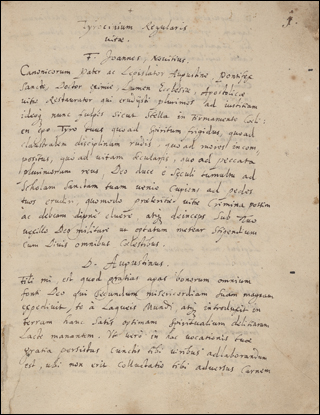 1.
Tyrocinium Regularis
vitæ.
F. Joannes, Novitius.
Canonicorum Pater ac Legislator Augustine, Pontifex
Sancte, Doctor eximie, Lumen Ecclesiæ, Apostolicæ
vitæ Restaurator qui erudisti plurimos ad iustitiam
ideoq nunc fulges sicut Stella in firmamento Coeli:
en ego Tyro tuus quoad spiritum frigidus, quoad
claustralem disciplinam rudis, quoad mores incom
positus, quoad vitam secularis, quoad peccata
plurimorum reus, Deo duce è sæculi tumultu ad
Scholam Sanitatis tuam venio cupiens ad pedes
tuos erudiri, quomodo præteritæ vitæ crimina possim
ac debeam digne eluere, atq deinceps sub tuo
vexillo Deo militare ut optatum merear stipendium
cum Divis omnibus Coelestibus.
D. Augustinus.
Fili mi est quod gratias agas bonorum omnium
fonti Deo qui secundum misericordiam suam magnam
expedivit te à Laqueis Mundi, atq introduxit in
terram hanc satis optimam spiritualium delitiarum
Lacte manantem. Ut verò in hac vocationis tuæ
gratia persistas cunctis tibi viribus adlaborandum
est, ubi non una colluctatio tibi adversus Carnem